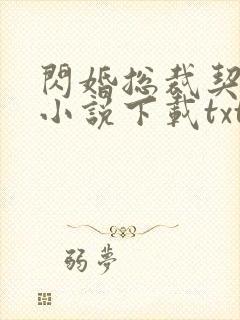 閃婚總裁契
小説下載txt
弱夢